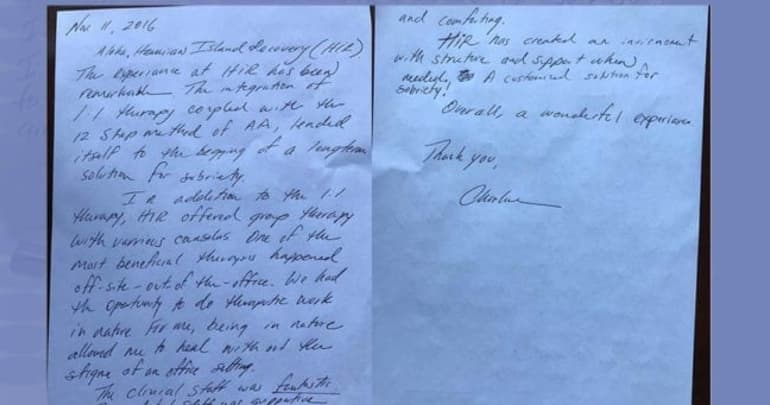 Nov 11, 2016
Aloha, Hawaiian Island Recovery (HIR)
The experience at HIR has been
remarkable. The integration of
1:1 therapy coupled with the
12 step method of AA, lended
itself to the begging of a longterm
solution for sobriety.
In addition to the 1:1
therapy, HIR offered group therapy
with various One of the
most beneficial therapys happened
off-site-out of the-office. We had
the oportunity to do theraputic work
in nature For me, being in nature
allowed me to heal with out the
stigma of an office setting.
The clinical staff was fantastic
staff was supportive
and comforting.
HIR has created an
with structure and support when
needed, A customized solution for
sobriety!
Overall, a wonderful experience
Thank you,